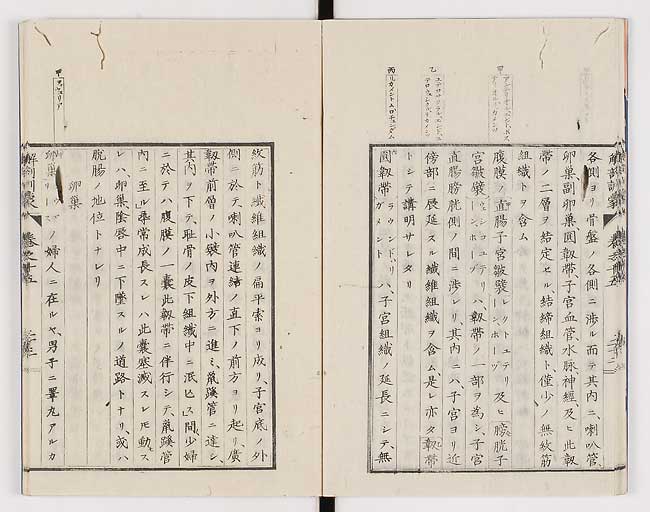 各側ヨリ骨盤ノ各側ニ渉ル而テ其内ニ、喇叭管、
卵巣、副卵巣、圓韌帯、子宮血管、水脉、神經、及ヒ此韌
帯ノ二層ヲ結定セル、結締組織ト、僅少ノ無紋筋
組織トヲ含ム
腹膜ノ直腸子宮皺襞レクトユテリ及ヒ膀胱子
宮皺襞ハ、韌帯ノ一部ヲ為シ、子宮
直腸膀胱側ノ間ニ渉レリ其内ニハ子宮ヨリ近
傍部ニ展延スル纎維組織ヲ含ム、是レ亦タ韌帯
トシテ講明サレタリ
圓韌帯ラウンドリガメントハ、子宮組織ノ延長ニシテ、無
紋筋ト纎維組織ノ扁平索ヨリ成リ、子宮底ノ外
側ニ於テ喇叭管連結ノ直下ノ前方ヨリ起リ、廣
韌帯前層ノ小襞内ヲ外方ニ進ミ、鼠蹊管ニ達シ、
其内ヲ下テ、耻骨ノ皮下組織中ニ泯ヒス間少婦
ニ於テハ腹膜ノ一囊此韌帯ニ伴行シテ、鼠蹊管
内ニ至ル、尋常成長スレハ此囊塞滅スレ𪜈動、ス
レハ、卵巣陰唇中ニ下墜スルノ道路トナリ、或ハ
脱腸ノ地位トナレリ
卵巣
卵巣ノ婦人ニ在ルヤ、男子ニ睪丸アルカ